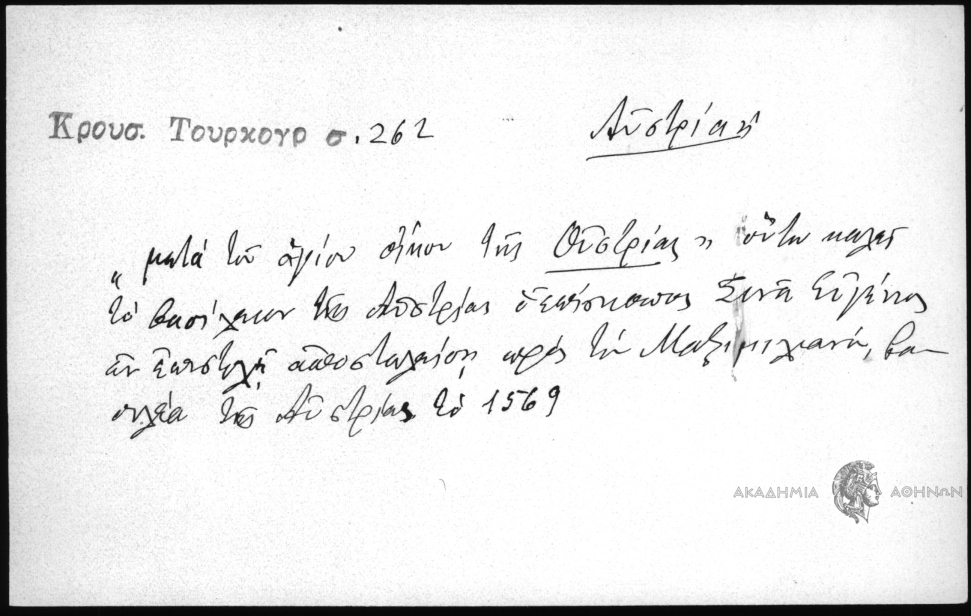 Κρουσ. Τουρκογρ σ. 262
Αὐστρία ἡ
„ μετά τοῦ ἁγίου οἴκου τῆς Οὐστρίας " οὕτω καλεῖ
τό βασίλειον τῆς Αὐστρίας ὁ ἐπίσκοπος Σινᾶ Εὐγένιος
ἐν ἐπιστολῇ ἀποσταλείσῃ πρός τόν Μαξιμιλιανόν, βα-
σιλέα τῆς Αὐστρίας τό 1569
ΑΚΑΔΗΜΙΑ ΑΘΗΝΩΝ